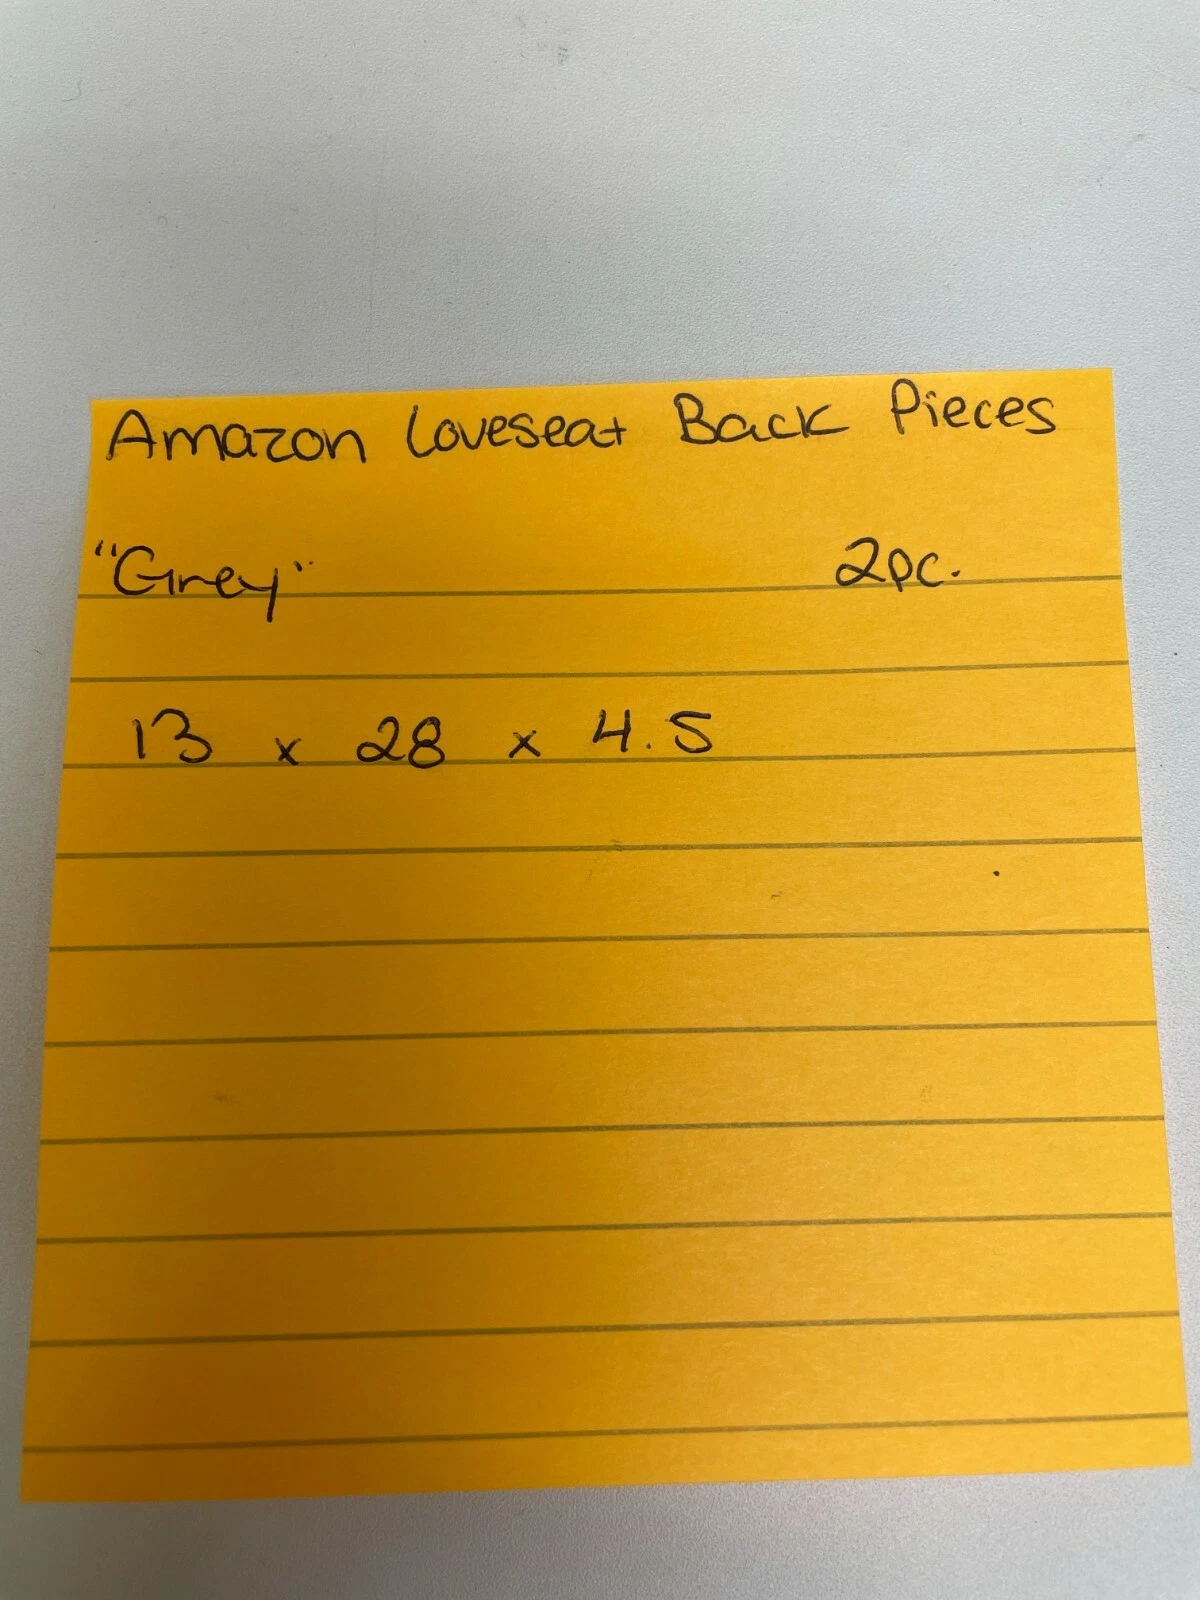 Amazon Loveseat Back Pieces
"Grey" 2pc.
13 x 28 x 4.5